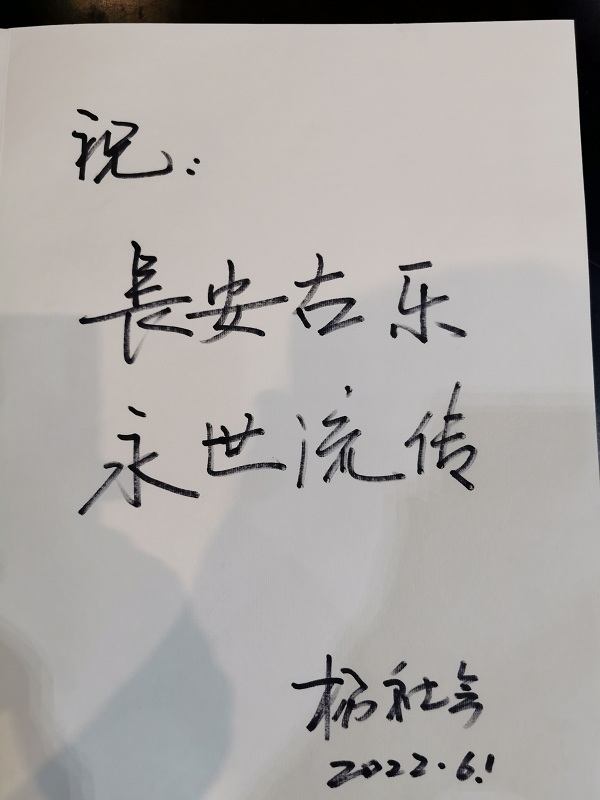 祝：
長安古乐
永世流传
杨社会
2022.6.1